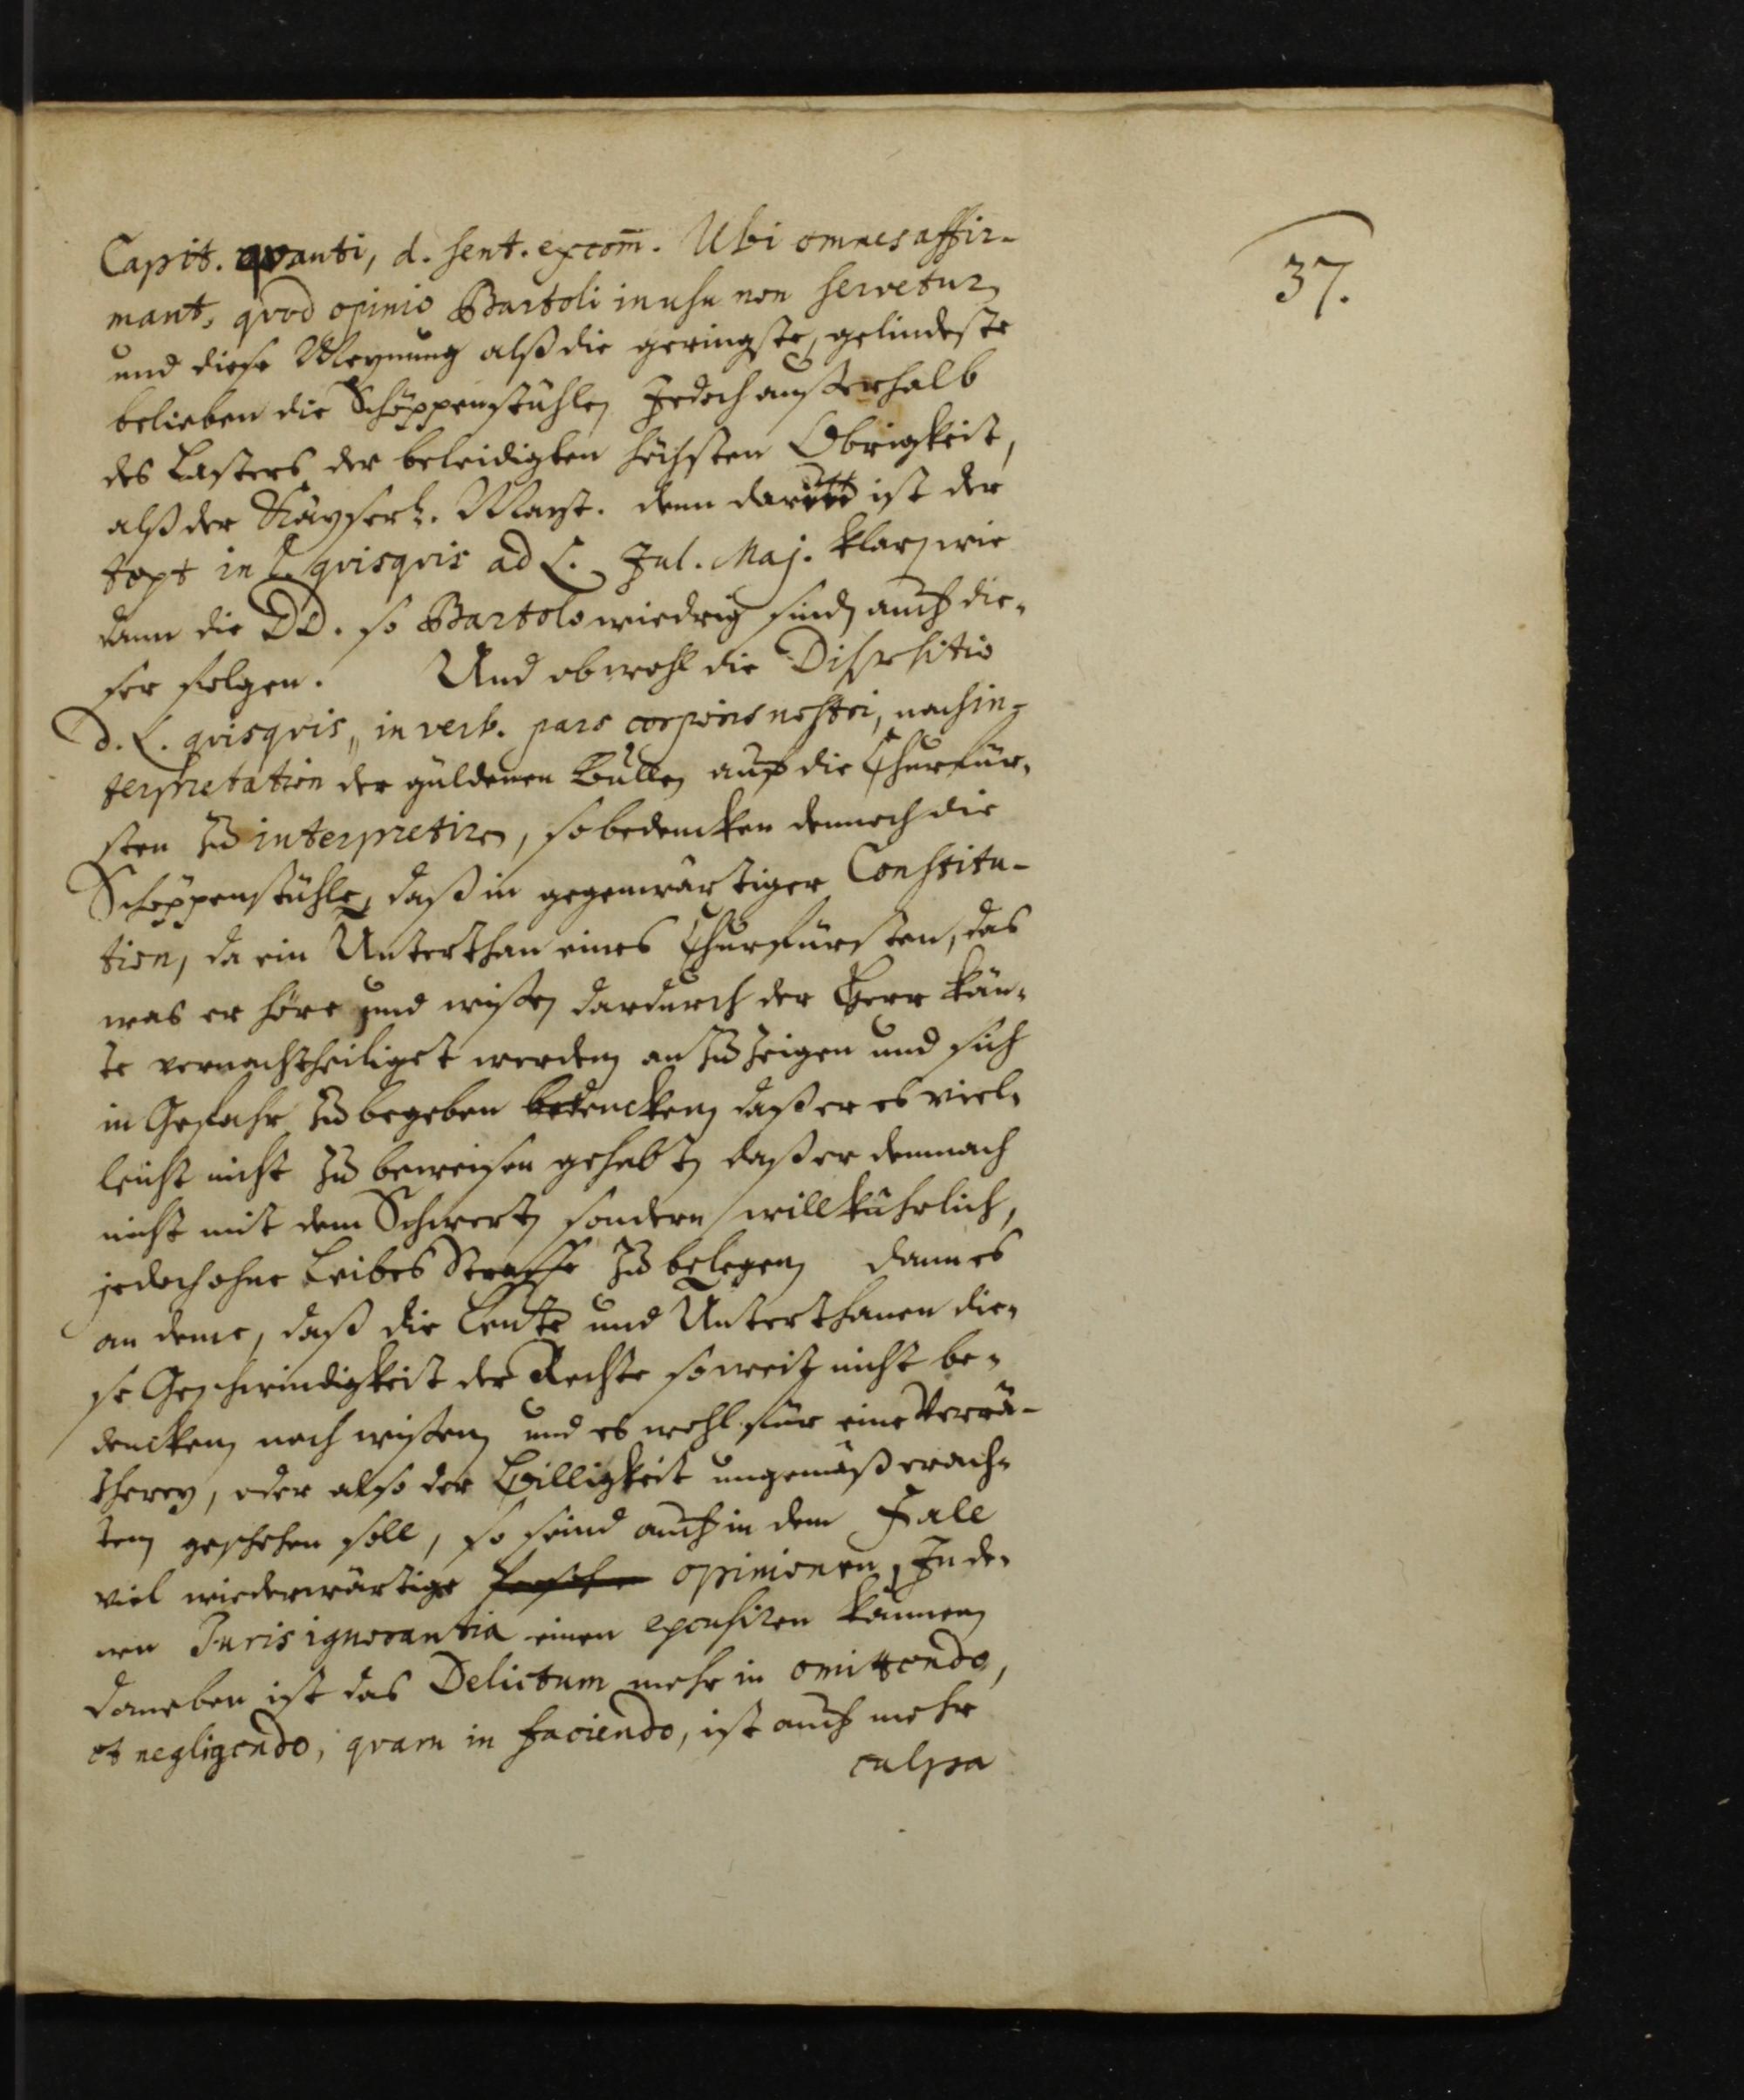 37.
Capit. qvanti, d. sent. excom̄. Ubi omnes affir-
mant, qvod opinio Bartoli in usu non servetur,
und diese Meynung alß die geringste, gelindeste
belieben die Schöppenstühle, Jedoch außerhalb
des Lasters der beleidigten höchsten Obrigkeit,
alß der Käyserl. Mayst. denn ist der
text in l. qvisqvis ad L. Jul. Maj. klar, wie
dann die DD. so Bartolo wiedrig sind, auch die-
ser folgen. Und obwohl die Dispositio
d. L. qvisqvis, in verb. pars corporis nostri, nach in-
terpretation der güldenen Bulle, auf die Churfür-
sten zu interpretiren, so bedencken dennoch die
Schöppenstühle, daß in gegenwärtiger Constitu-
tion, da ein Unterthan eines Churfürsten, das
was er höre und wisse, dardurch der Herr kön-
te vernachtheiliget werden, an zu zeigen und sich
in Gefahr zu begeben bedencken, daß er es viel-
leicht nicht zu beweisen gehabt, daß er demnach
nicht mit dem Schwert, sondern willkührlich,
jedoch ohne Leibes Straffe zu belegen, dann es
an deme, daß die Leute und Unterthanen die-
se Geschwindigkeit der Rechte so weit nicht be-
dencken, noch wissen, und es wohl für eine Verrä-
therey, oder also der Billigkeit ungemäß erach-
ten, geschehen soll, so seind auch in dem Fall
viel wiederwärtige opinionen, In de-
nen Juris ignorantia einen excusiren können,
daneben ist das Delictum mehr in omittendo,
et negligendo, qvam in faciendo, ist auch mehr
culpa